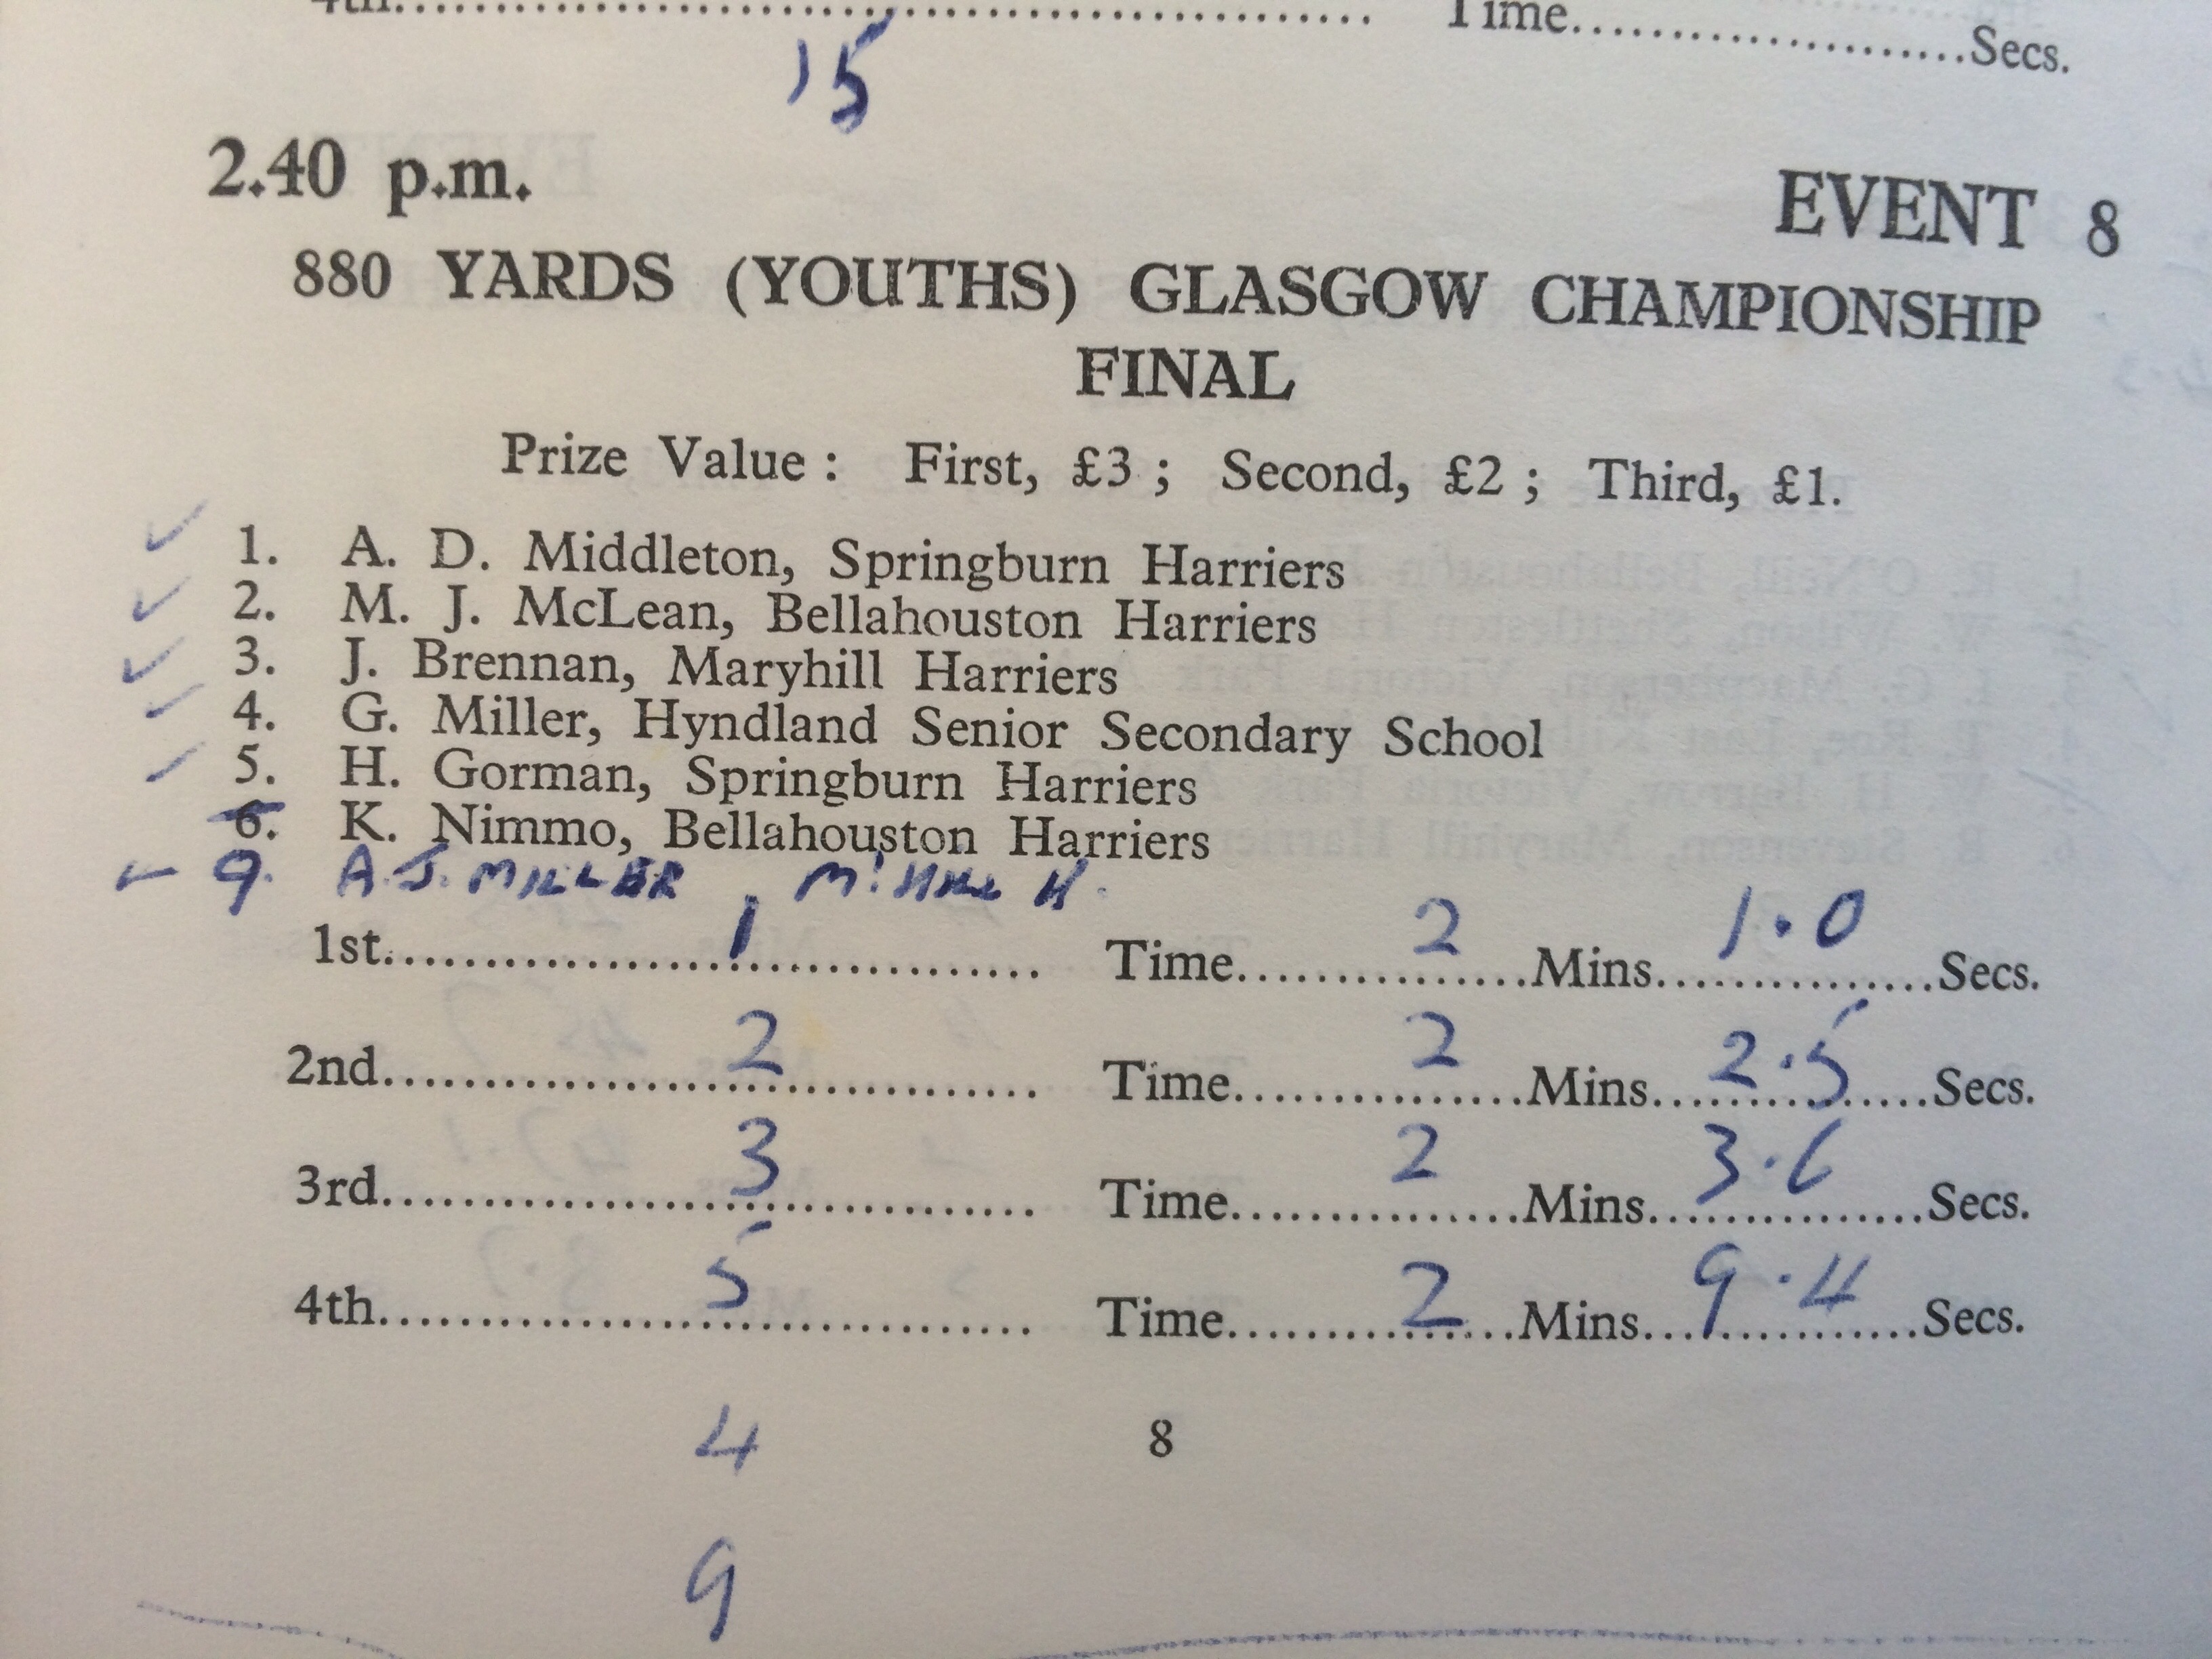 4th........................................ Time....................Secs.
15
2.40 p.m.
EVENT 8
880 YARDS (YOUTHS) GLASGOW CHAMPIONSHIP
FINAL
Prize Value : First, £3 ; Second, £2 ; Third, £1.
1. A. D. Middleton, Springburn Harriers
2. M. J. McLean, Bellahouston Harriers
3. J. Brennan, Maryhill Harriers
4. G. Miller, Hyndland Senior Secondary School
5. H. Gorman, Springburn Harriers
6. K. Nimmo, Bellahouston Harriers
9. A.J. MILLER, M'HILL H.
1st..........1.......... Time..........2..........Mins..........1.0..........Secs.
2nd..........2.......... Time..........2..........Mins..........2.5..........Secs.
3rd..........3.......... Time..........2..........Mins..........3.6..........Secs.
4th..........5.......... Time..........2..........Mins..........9.4..........Secs.
4
8
9